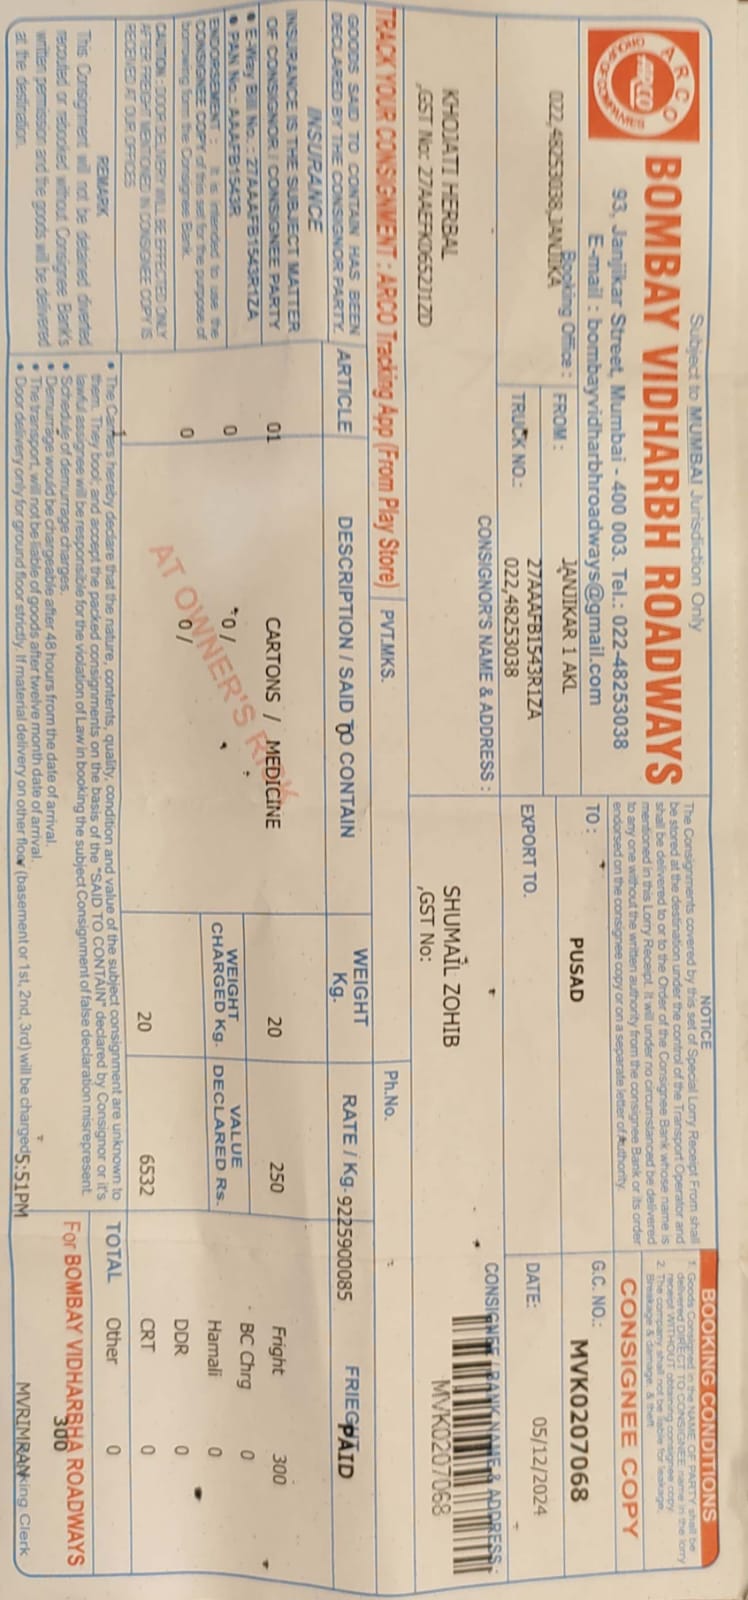 ARCO
GROUP OF COMPANIES
Subject to MUMBAI Jurisdiction Only
BOMBAY VIDHARBH ROADWAYS
93, Janjikar Street, Mumbai - 400 003. Tel.: 022-48253038
E-mail : bombayvidharbhroadways@gmail.com
NOTICE
The Consignments covered by this set of Special Lorry Receipt From shall
be stored at the destination under the control of the Transport Operator and
shall be delivered to or to the Order of the Consignee Bank whose name is
mentioned in this Lorry Receipt. It will under no circumstanced be delivered
to any one without the written authority from the consignee Bank or its order
endorsed on the consignee copy or on a separate letter of Authority.
BOOKING CONDITIONS
1. Goods Consigned in the NAME OF PARTY shall be
delivered DIRECT TO CONSIGNEE name in the lorry
receipt WITHOUT obtaining consignee copy.
2. The company shall not be liable for leakage,
Breakage & damage. & theft
CONSIGNEE COPY
Booking Office :
022,48253038,JANJIKA
FROM :
JANJIKAR 1 AKL
TO :
PUSAD
G.C. NO.:
MVK0207068
TRUCK NO.:
27AAAFB1543R1ZA
022,48253038
EXPORT TO.
DATE:
05/12/2024
CONSIGNOR'S NAME & ADDRESS :
CONSIGNEE / BANK NAME & ADDRESS :
KHOJATI HERBAL
,GST No: 27AAEFK0652J1ZD
SHUMAIL ZOHIB
,GST No:
MVK0207068
TRACK YOUR CONSIGNMENT : ARCO Tracking App (From Play Store)
PVT.MKS.
Ph.No.
GOODS SAID TO CONTAIN HAS BEEN
DECLARED BY THE CONSIGNOR PARTY.
ARTICLE
DESCRIPTION / SAID TO CONTAIN
WEIGHT
Kg.
RATE / Kg.
9225900085
FRIEGHT
PAID
INSURANCE
INSURANCE IS THE SUBJECT MATTER
OF CONSIGNOR / CONSIGNEE PARTY
• E-Way Bill No. : 27AAAFB1543R1ZA
• PAN No.: AAAFB1543R
01
CARTONS / MEDICINE
20
250
Fright 300
0
0 /
BC Chrg 0
WEIGHT
CHARGED Kg.
VALUE
DECLARED Rs.
Hamali 0
0
0 /
DDR 0
AT OWNER'S RISK
20
6532
CRT 0
ENDORSEMENT : It is intended to use the
CONSIGNEE COPY of this set for the purpose of
borrowing form the Consignee Bank.
CAUTION : DOOR DELIVERY WILL BE EFFECTED ONLY
AFTER FREIGHT MENTIONED IN CONSIGNEE COPY IS
RECEIVED AT OUR OFFICES
REMARK
This Consignment will not be detained diverted
recouted or rebooked without Consignee Bank's
written permission and the goods will be delivered
at the destination.
1
• The Carriers hereby declare that the nature, contents, quality, condition and value of the subject consignment are unknown to
them. They book and accept the packed consignments on the basis of the "SAID TO CONTAIN" declared by Consignor or it's
lawful assignee will be responsible for the violation of Law in booking the subject Consignment of false declaration misrepresent.
• Schedule of demurrage charges.
• Demurrege would be chargeable after 48 hours from the date of arrival.
• The transport, will not be liable of goods after twelve month date of arrival.
• Door delivery only for ground floor strictly. If material delivery on other floor (basement or 1st, 2nd, 3rd) will be charged
5:51PM
TOTAL
Other 0
300
For BOMBAY VIDHARBHA ROADWAYS
MVRIMRAN
king Clerk